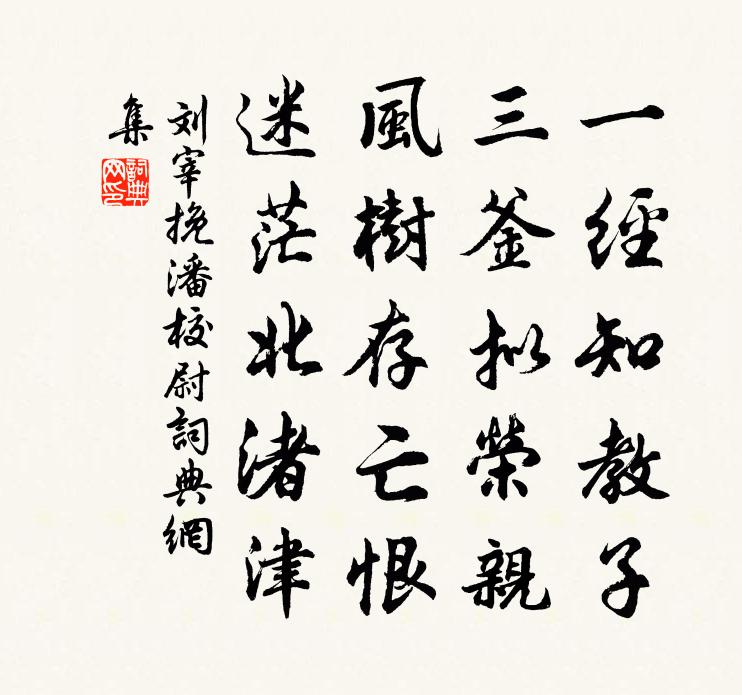 一經知教子
三釜拟榮親
風樹存亡恨
迷茫北渚津
刘宰挽潘校尉詞典網
集
詞典
网印